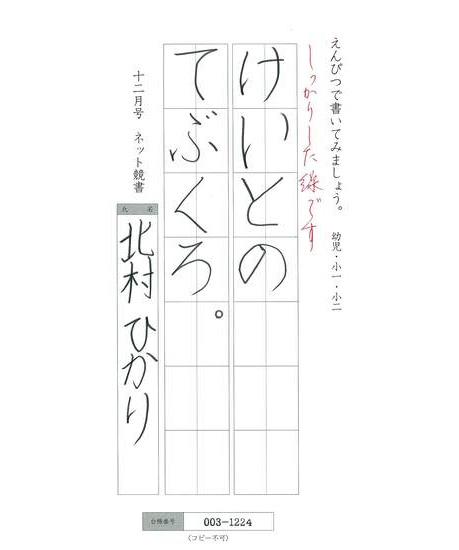 えんぴつで書いてみましょう。 幼児・小一・小二
しっかりした線です
けいとの
てぶくろ。
十二月号 ネット競書
氏名
北村ひかり
台帳番号 003-1224
(コピー不可)